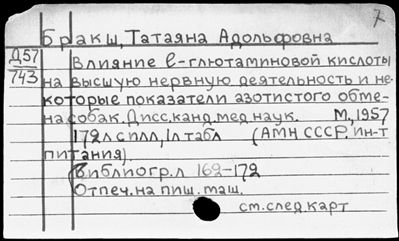 7
Бракш, Татаяна Адольфовна
Д57
743
Влияние l-глютаминовой кислоты
на высшую нервную деятельность и не-
которые показатели азотистого обме-
на собак. Дисс. канд. мед. наук. М, 1957
172 л с илл, 1 л табл (АМН СССР. ин-т
питания).
Библиогр. л 162-172
Отпеч. на пиш. маш.
см. след. карт